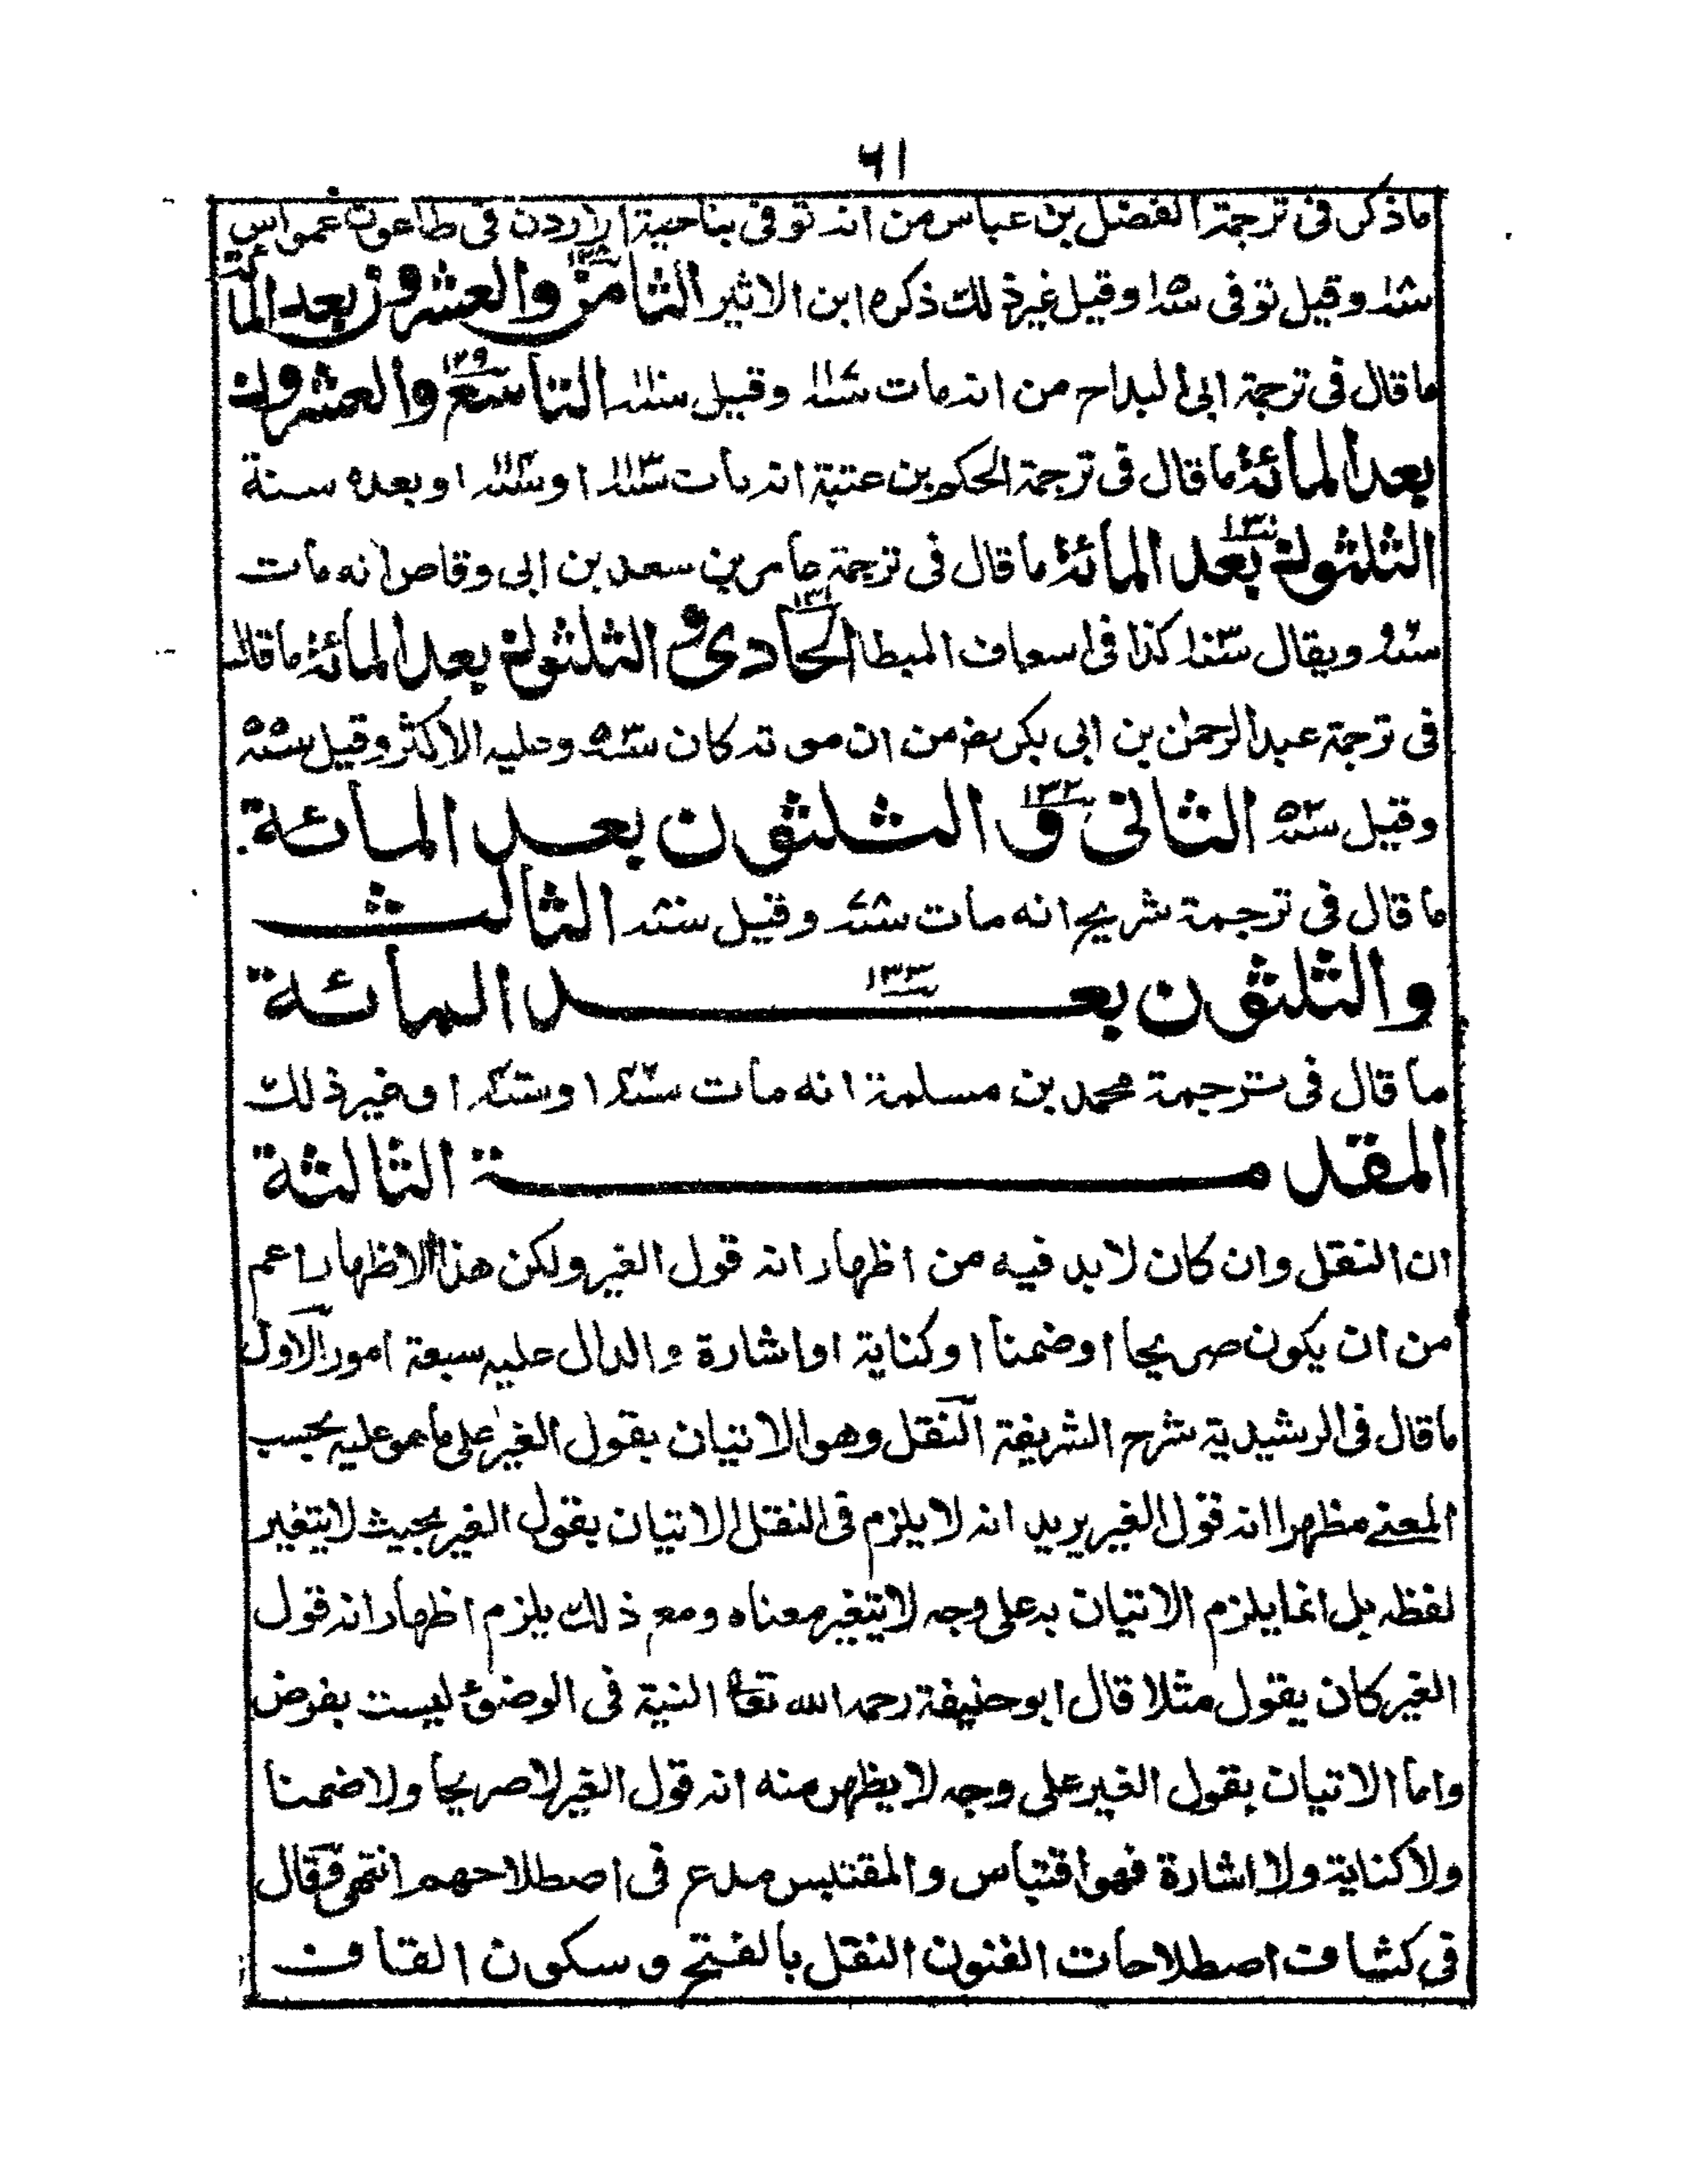 ٦١
ما ذكر فى ترجمة الفضل بن عباس من انه توفى بناحية الاردن فى طاعون عمواس
سنة ١٨ وقيل توفى سنة ١٥ وقيل غير ذلك ذكره ابن الاثير الثامن والعشرون بعد المأئة ١٢٨
ما قال فى ترجمة ابى البداح من انه مات سنة وقيل سنة ١١٠ التاسع والعشرون ١٢٩
بعد المائة ما قال فى ترجمة الحكم بن عتبة انه مات سنة ١١٣ او سنة ١١٤ او بعده سنة
الثلثون بعد المائة ١٣٠ ما قال فى ترجمة عامر بن سعد بن ابى وقاص انه مات
سنة ويقال سنة ١٠٣ كذا فى اسعاف المبطا الحادى و الثلثون بعد المائة ١٣١ ما قال
فى ترجمة عبد الرحمن بن ابى بكر رض من ان موته كان سنة ٥٣ وعليه الاكثر وقيل سنة
وقيل سنة الثانى و الثلثون بعد المائة ١٣٢
ما قال فى ترجمة شريح انه مات سنة ٧٨ وقيل سنة ٨٠ الثالث
والثلثون بعد المائة ١٣٣
ما قال فى ترجمة محمد بن مسلمة انه مات سنة او سنة او غير ذلك
المقدمة الثالثة
ان النقل وان كان لابد فيه من اظهار انه قول الغير ولكن هذا الاظهار اعم
من ان يكون صريحا او ضمنا او كناية او اشارة والدال عليه سبعة امور الاول
ما قال فى الرشيدية شرح الشريفة النقل وهو الاتيان بقول الغير على ما هو عليه بحسب
المعنى مظهرا انه قول الغير يريد انه لا يلزم فى النقل الاتيان بقول الغير بحيث لا يتغير
لفظه بل انما يلزم الاتيان به على وجه لا يتغير معناه ومع ذلك يلزم اظهار انه قول
الغير كان يقول مثلا قال ابو حنيفة رحمه الله تعا النية فى الوضوء ليست بفرض
واما الاتيان بقول الغير على وجه لا يظهر منه انه قول الغير لا صريحا ولا ضمنا
ولا كناية ولا اشارة فهو اقتباس والمقتبس مدع فى اصطلاحهم انتهى وقال
فى كشاف اصطلاحات الفنون النقل بالفتح و سكون القاف